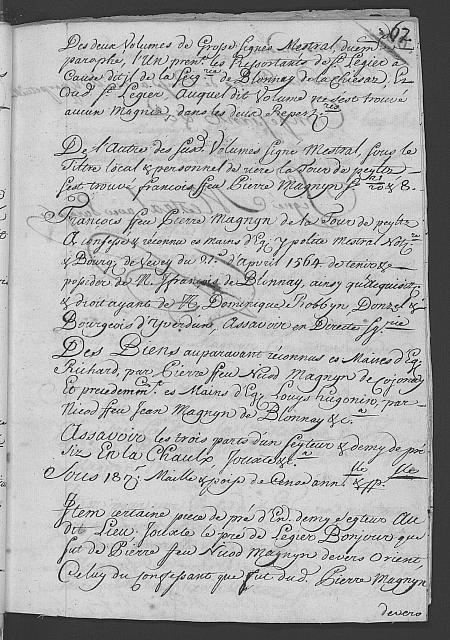 67.
Des deux Volumes de Grosse signés Mestral, duem.t
paraphé, l'Un pren.t les Ressortants de St Legier à
Cause dit il de la Seig.rie de Blonnay de la Chiesaz, Et
dud. St Legier, Auquel dit Volume ne s'est trouvé
aucun Magnin, dans les deux Repert.
De l'Autre des susd. Volumes signé Mestral, sous le
Tiltre local & personnel de riere la Tour de peyltz
s'est trouvé françois feu Pierre Magnyn f.o 20 & 8.
François feu Pierre Magnyn de la Tour de peyltz
A confessé & reconnu es mains d'Eg. Ypolite Mestral Not.re
& Bourg. de Vevey du 27.e d'Avril 1564 de tenir &
posseder de N. François de Blonnay, ainsy qu'acquisit.r
& droit ayant de N. Dominique Robbyn Donzel &
Bourgeois d'Yverdun, Assavoir en Directe Sg.rie
Des Biens auparavant reconnus es Mains d'Eg.
Richard, par Pierre feu Nicod Magnyn de Cojonnay
Et précedemm.t es Mains d'Eg. Louys Hugonin, par
Nicod feu Jean Magnyn de Blonnay &c.a
Assavoir les trois parts d'un seyteur & demy de pré
siz En la Chaulx Jouxte &c.a
Sous 18 Maille & poise de Cense ann.l
Item certaine piece de pré d'En. demy seyteur Au
dit Lieu: Jouxte le pré de Legier Bonjour que
fut de Pierre feu Nicod Magnyn devers Orient
Celuy du confessant que fut dud. Pierre Magnyn
devers